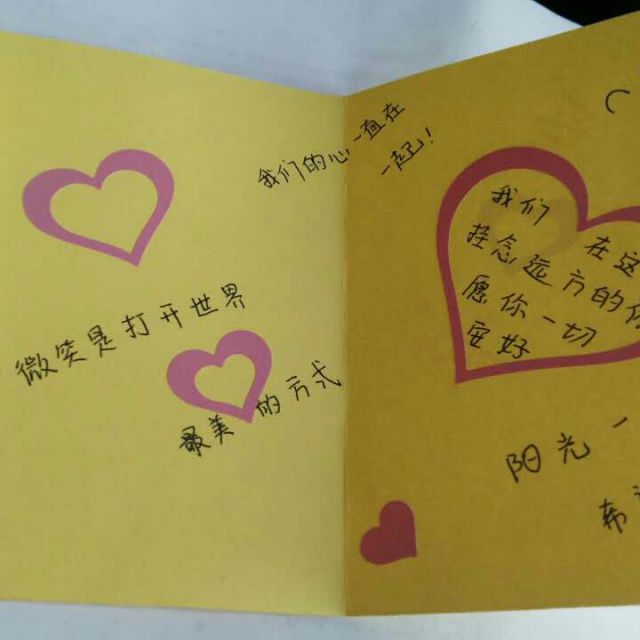 我们的心一直在
一起!
微笑是打开世界
最美的方式
我们 在这
挂念远方的你
愿你一切
安好
阳光一
希